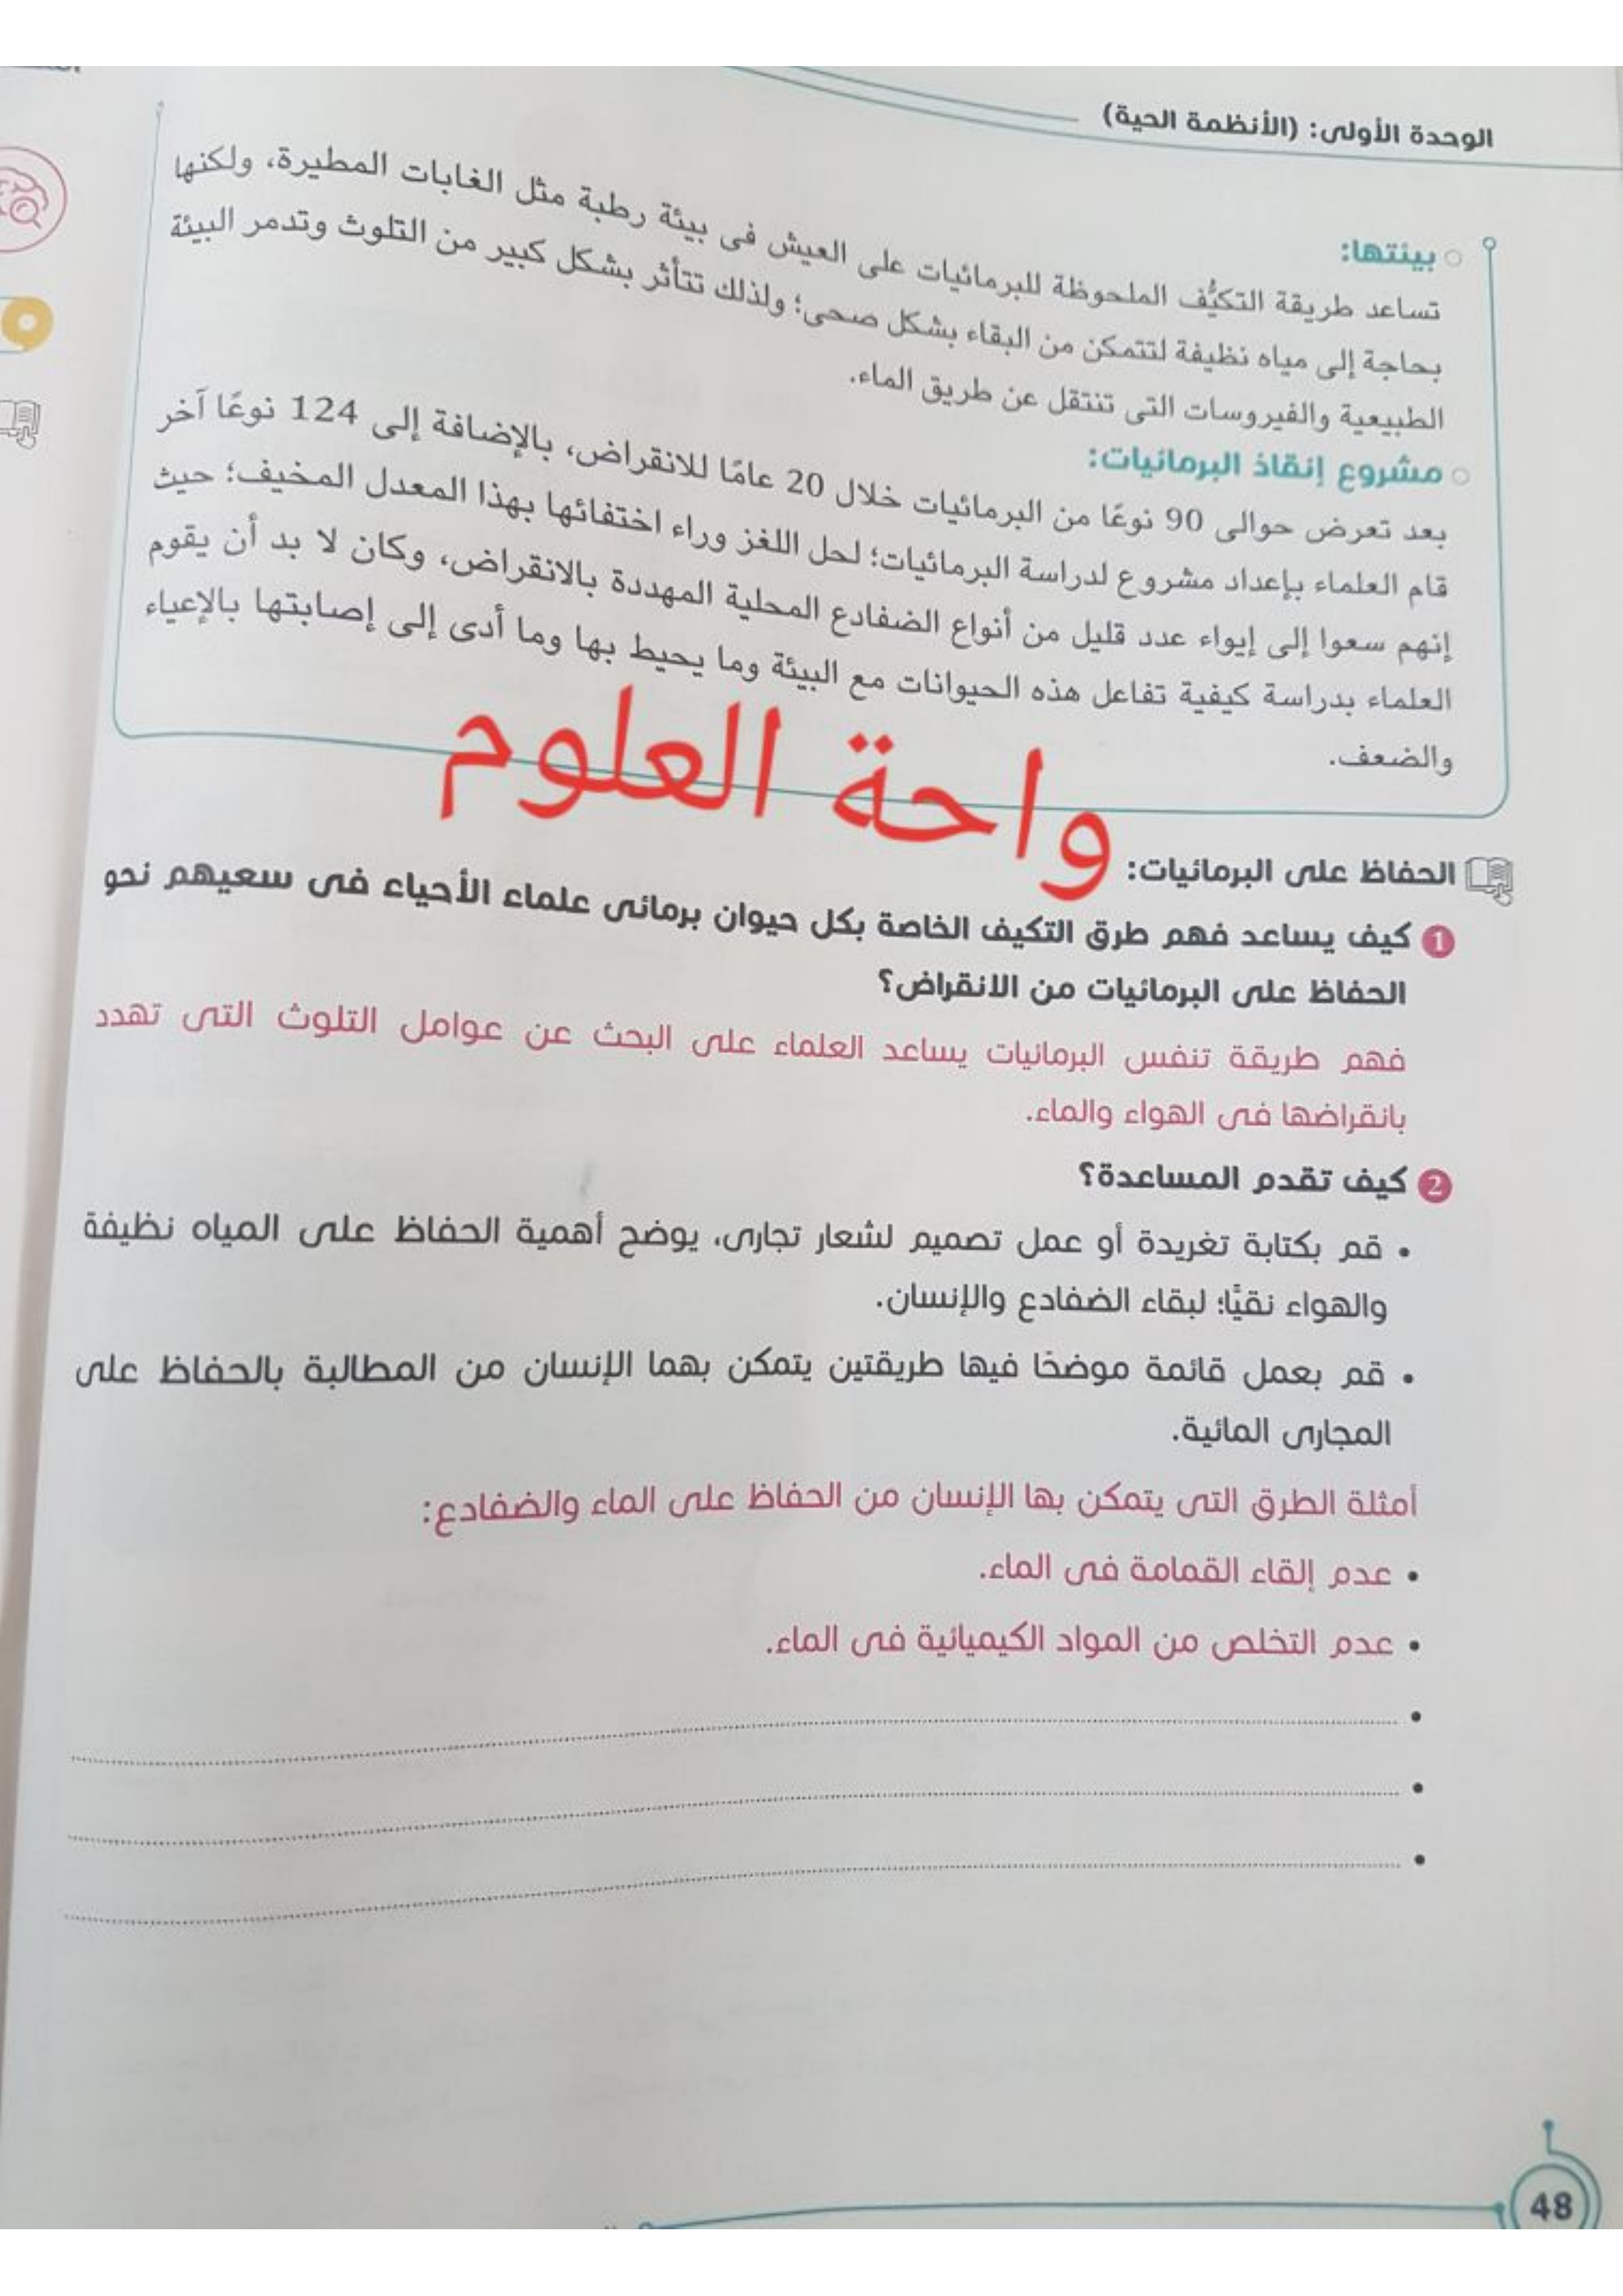 الوحدة الأولى: (الأنظمة الحية)
بيئتها:
تساعد طريقة التكيُّف الملحوظة للبرمائيات على العيش فى بيئة رطبة مثل الغابات المطيرة، ولكنها
بحاجة إلى مياه نظيفة لتتمكن من البقاء بشكل صحى؛ ولذلك تتأثر بشكل كبير من التلوث وتدمر البيئة
الطبيعية والفيروسات التى تنتقل عن طريق الماء.
مشروع إنقاذ البرمائيات:
بعد تعرض حوالى 90 نوعًا من البرمائيات خلال 20 عامًا للانقراض، بالإضافة إلى 124 نوعًا آخر
قام العلماء بإعداد مشروع لدراسة البرمائيات؛ لحل اللغز وراء اختفائها بهذا المعدل المخيف؛ حيث
إنهم سعوا إلى إيواء عدد قليل من أنواع الضفادع المحلية المهددة بالانقراض، وكان لا بد أن يقوم
العلماء بدراسة كيفية تفاعل هذه الحيوانات مع البيئة وما يحيط بها وما أدى إلى إصابتها بالإعياء
والضعف.
واحة العلوم
الحفاظ على البرمائيات:
1 كيف يساعد فهم طرق التكيف الخاصة بكل حيوان برمائى علماء الأحياء فى سعيهم نحو
الحفاظ على البرمائيات من الانقراض؟
فهم طريقة تنفس البرمائيات يساعد العلماء على البحث عن عوامل التلوث التى تهدد
بانقراضها فى الهواء والماء.
2 كيف تقدم المساعدة؟
• قم بكتابة تغريدة أو عمل تصميم لشعار تجارى، يوضح أهمية الحفاظ على المياه نظيفة
والهواء نقيًّا؛ لبقاء الضفادع والإنسان.
• قم بعمل قائمة موضحًا فيها طريقتين يتمكن بهما الإنسان من المطالبة بالحفاظ على
المجارى المائية.
أمثلة الطرق التى يتمكن بها الإنسان من الحفاظ على الماء والضفادع:
• عدم إلقاء القمامة فى الماء.
• عدم التخلص من المواد الكيميائية فى الماء.
48